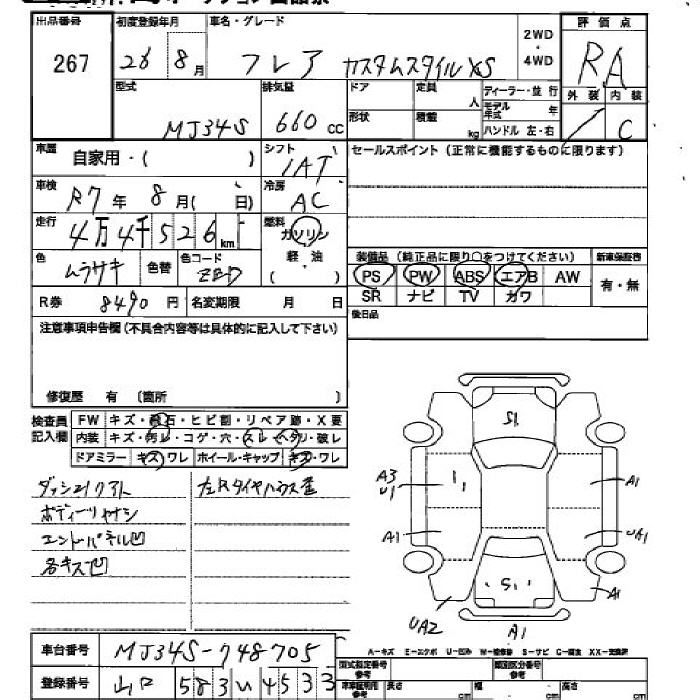 出品番号
267
初度登録年月
26 8月
車名・グレード
フレア カスタムスタイルXS
2WD
・
4WD
評価点
RA
型式
MJ34S
排気量
660 cc
ドア
形状
定員
人
積載
kg
ディーラー・並行
モデル年式 年
ハンドル 左・右
外装 内装
C
車歴
自家用・( )
シフト
IAT
セールスポイント(正常に機能するものに限ります)
車検
R7年 8月( 日)
冷房
AC
走行
4万4千526km
燃料
ガソリン
軽・油
( )
色
ムラサキ
色替
色コード
装備品(純正品に限り○をつけてください)
新車保証書
PS PW ABS エアB AW
有・無
SR ナビ TV カワ
R券 8490円
名変期限 月 日
後日品
注意事項申告欄(不具合内容等は具体的に記入して下さい)
修復歴 有 (箇所 )
検査員
記入欄
FW キズ・飛石・ヒビ割・リペア跡・X要
内装 キズ・汚レ・コゲ・穴・スレ・ヘタリ・破レ
ドアミラー キズ・ワレ ホイール・キャップ キズ・ワレ
左Rタイヤハウス歪
エンドパネル凹
各キズ凹
S1
A3
U1
A1
A1
UA1
S1
A1
UA2
A1
車台番号 MJ34S-748705
登録番号 山口 583 い 4533
A-キズ E-エクボ U-凹み W-補修跡 S-サビ C-腐食 XX-交換済
型式指定番号
参考
類別区分番号
参考
車庫証明用
参考
長さ cm
幅 cm
高さ cm